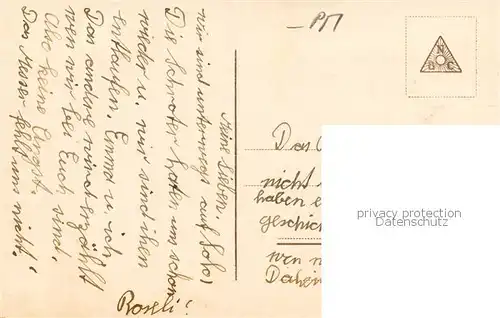 Meine Lieben.
wir sind unterwegs auf Solo,
Die Schroter haben uns schon
wieder u. wir sind ihen
entlaufen. Emma u. ich.
Das andere wird erzählt
wen wir bei Euch sind.
Also keine Angst.
Das Messer fehlt uns nicht!
Roseli!
Das
nicht
haben e
geschich
wen n
Daheim
N
B C
privacy protection
Datenschutz